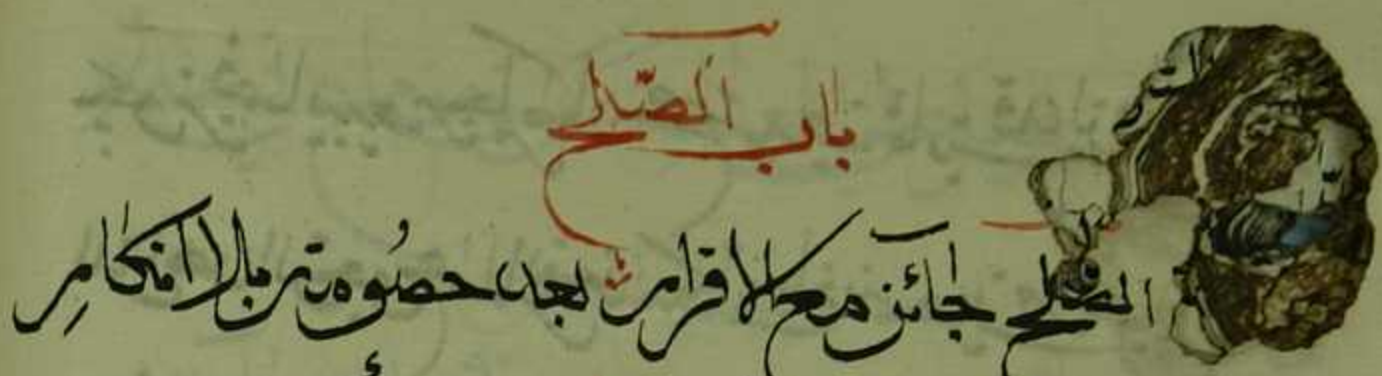 باب الصّلح
الصُلح جائز مع الاقرار بعد حصُومة بالاانكارِ